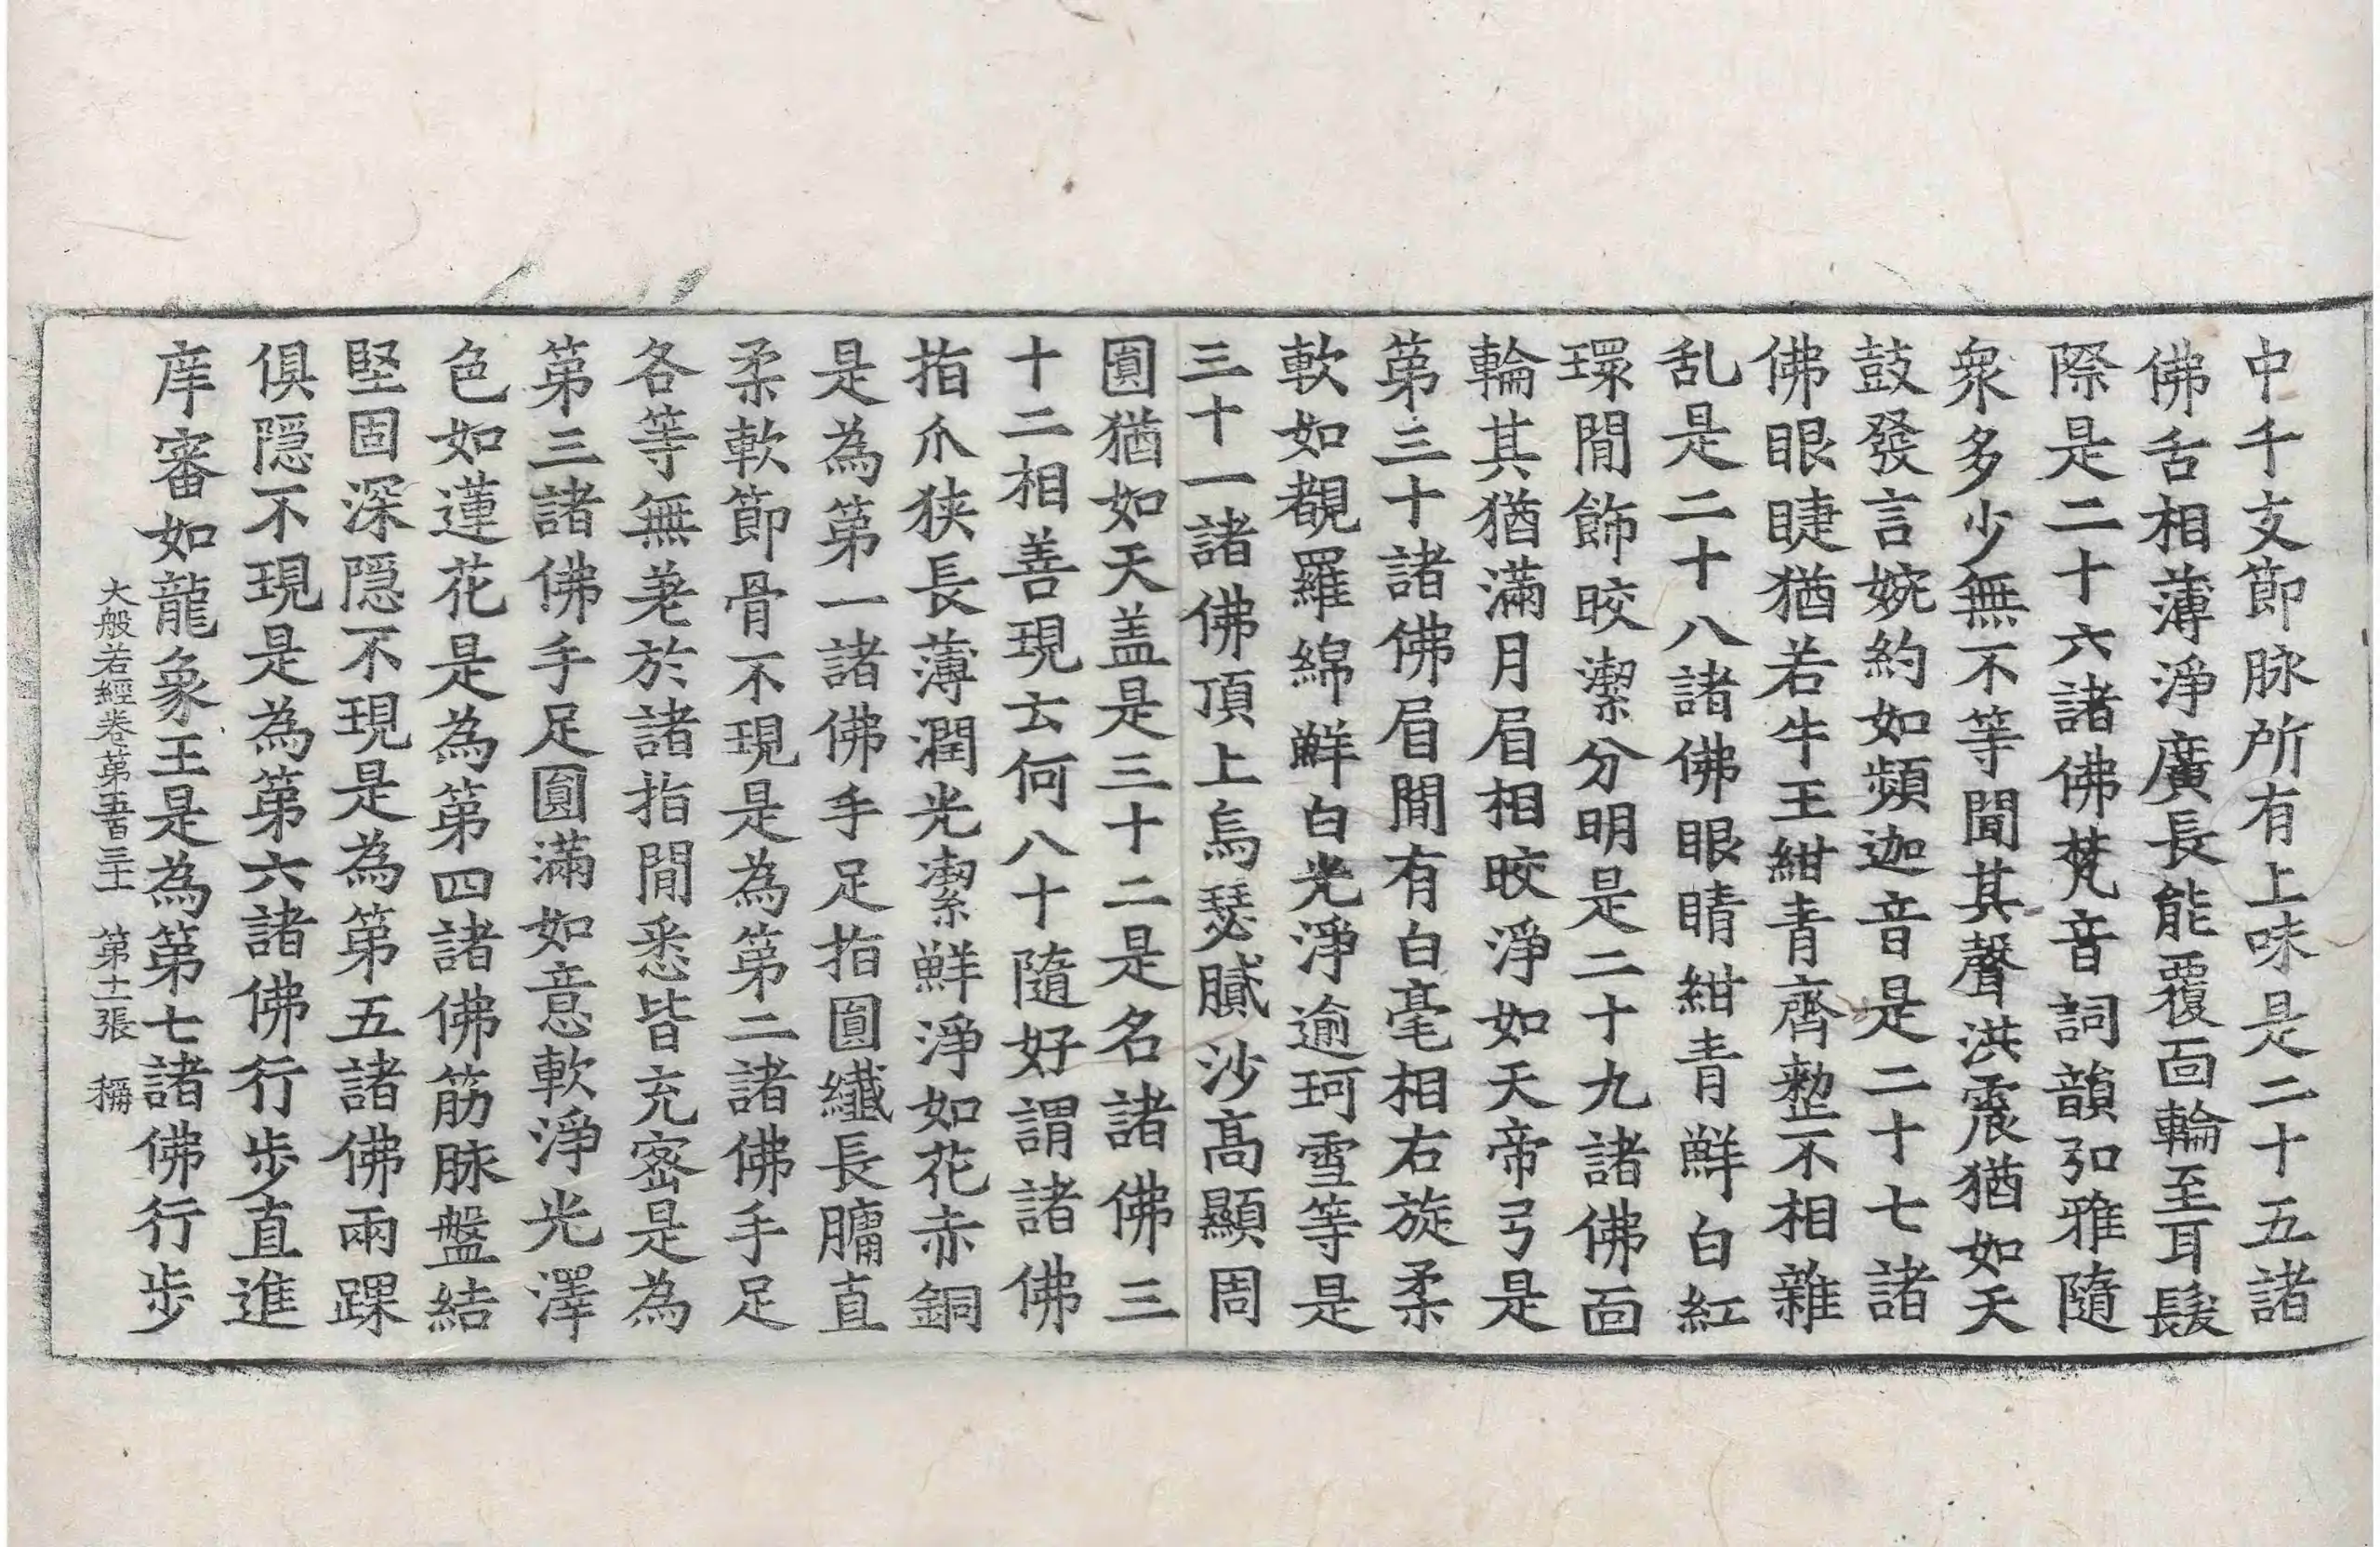 中千支節脉所有上味是二十五諸
佛舌相薄淨廣長能覆面輪至耳髮
際是二十六諸佛梵音詞韻弘雅隨
衆多少無不等聞其聲洪震猶如天
鼓發言婉約如頻迦音是二十七諸
佛眼睫猶若牛王紺青齊整不相雜
乱是二十八諸佛眼睛紺青鮮白紅
環閒飾皎潔分明是二十九諸佛面
輪其猶滿月眉相皎淨如天帝弓是
第三十諸佛眉閒有白毫相右旋柔
軟如覩羅綿鮮白光淨逾珂雪等是
三十一諸佛頂上烏瑟膩沙高顯周
圓猶如天盖是三十二是名諸佛三
十二相善現云何八十隨好謂諸佛
指爪狹長薄潤光潔鮮淨如花赤銅
是為第一諸佛手足指圓纖長𦟛直
柔軟節骨不現是為第二諸佛手足
各等無差於諸指閒悉皆充密是為
第三諸佛手足圓滿如意軟淨光澤
色如蓮花是為第四諸佛筋脉盤結
堅固深隱不現是為第五諸佛兩踝
俱隱不現是為第六諸佛行步直進
庠審如龍象王是為第七諸佛行步
大般若經卷第五百三十一 第十一張 稱